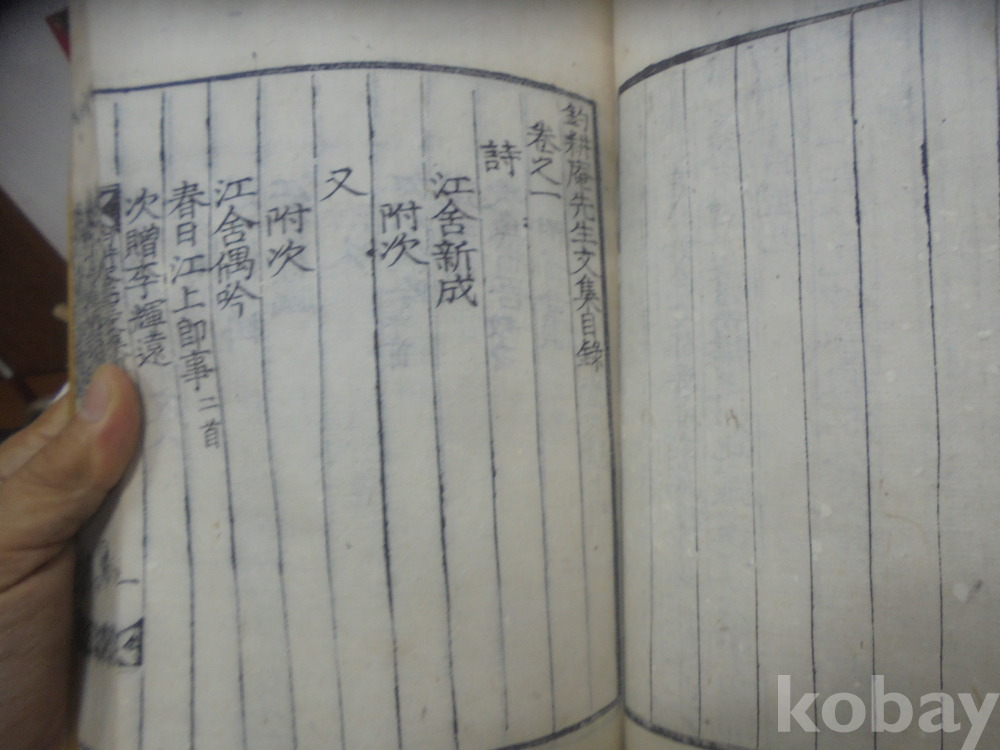 釣耕庵先生文集目錄
卷之一
詩
江舍新成
附次
又
附次
江舍偶吟
春日江上卽事 二首
次贈李輝遠
一
kobay